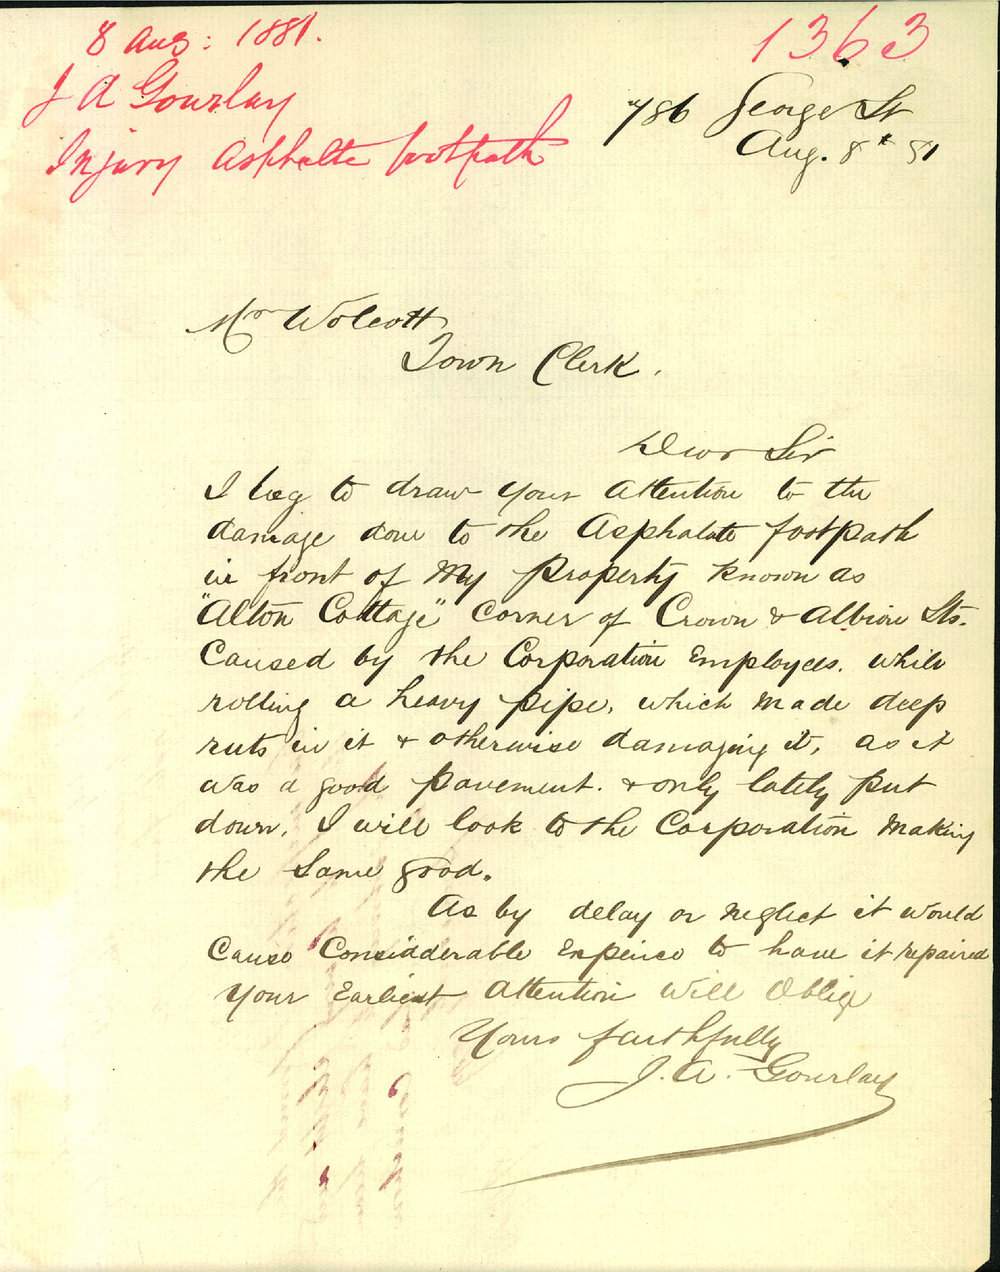 8 Aug: 1881.
1363
J A Gourlay
Injury Asphalte footpath
786 George St
Aug. 8th 81
Mr Wolcott
Town Clerk.
Dear Sir
I beg to draw your attention to the
damage done to the Asphalate footpath
in front of my property known as
"Alton Cottage" Corner of Crown & Albion Sts.
Caused by the Corporation Employees. while
rolling a heavy pipe, which made deep
ruts in it & otherwise damaging it, as it
was a good pavement. & only lately put
down, I will look to the Corporation making
the same good.
As by delay or neglect it would
Cause Considderable Expence to have it repaired
Your Earliest attention will oblige
Yours faithfully
J. A. Gourlay